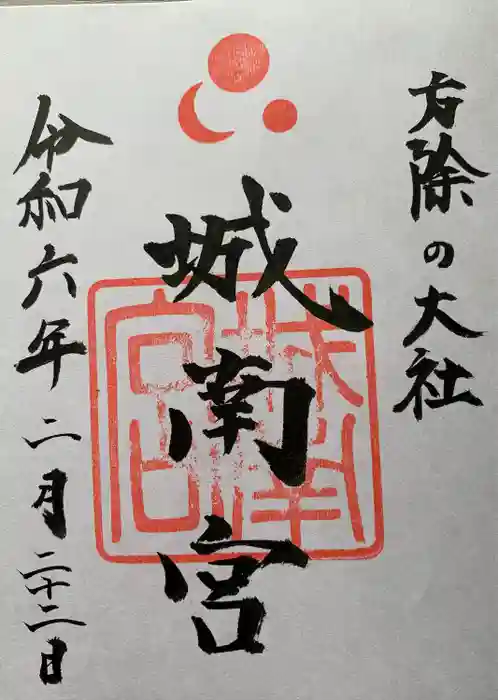 方除の大社
城南宮
城南宮
令和六年二月二十二日